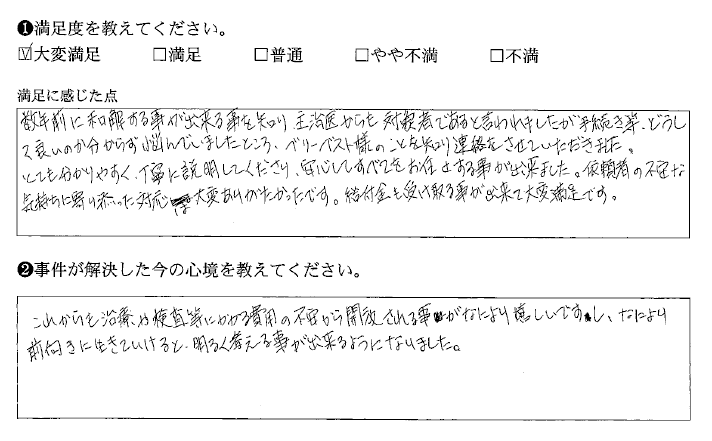 ❶満足度を教えてください。
☑大変満足 □満足 □普通 □やや不満 □不満
満足に感じた点
数年前に和解する事が出来る事を知り、主治医からも対象者であると言われましたが手続き等、どうし
て良いのか分からず悩んでいましたところ、ベリーベスト様のことを知り連絡をさせていただきました。
とても分かりやすく、丁寧に説明してくださり、安心してすべてをお任せする事が出来ました。依頼者の不安な
気持ちに寄り添った対応は大変ありがたかったです。給付金も受け取る事が出来て大変満足です。
❷事件が解決した今の心境を教えてください。
これからも治療や検査等にかかる費用の不安から開放される事がなにより嬉しいですし、なにより
前向きに生きていけると、明るく考える事が出来るようになりました。